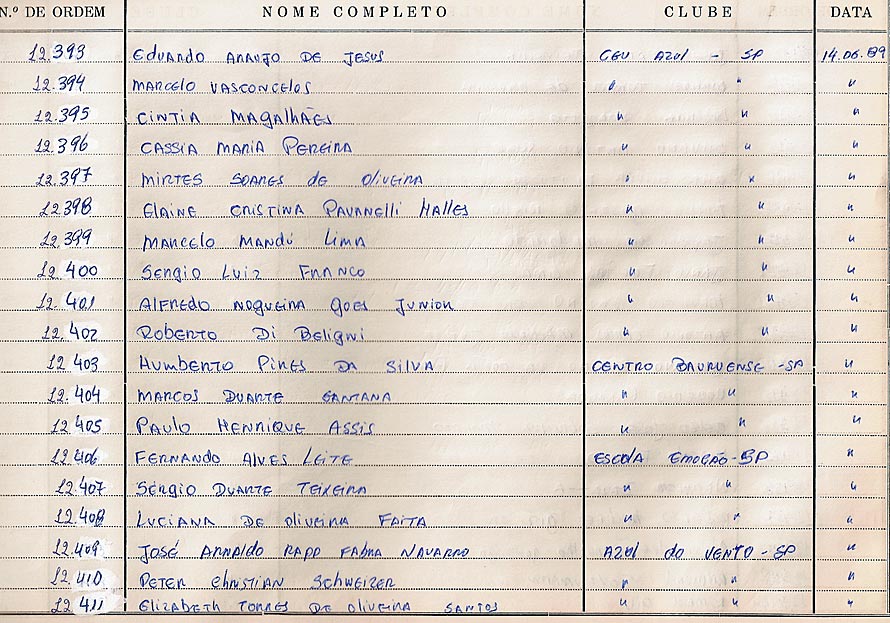 N.º DE ORDEM NOME COMPLETO CLUBE DATA
12.393 EDUARDO ARAUJO DE JESUS CEU AZUL - SP 14.06.89
12.394 MARCELO VASCONCELOS " " "
12.395 CINTIA MAGALHÃES " " "
12.396 CASSIA MARIA PEREIRA " " "
12.397 MIRTES SOARES DE OLIVEIRA " " "
12.398 ELAINE CRISTINA PAVANELLI HALLES " " "
12.399 MARCELO MANDÚ LIMA " " "
12.400 SERGIO LUIZ FRANCO " " "
12.401 ALFREDO NOGUEIRA GOES JUNIOR " " "
12.402 ROBERTO DI BELIGNI " " "
12.403 HUMBERTO PIRES DA SILVA CENTRO BAURUENSE - SP "
12.404 MARCOS DUARTE SANTANA " " "
12.405 PAULO HENRIQUE ASSIS " " "
12.406 FERNANDO ALVES LEITE ESCOLA EMOÇÃO - SP "
12.407 SÉRGIO DUARTE TEIXEIRA " " "
12.408 LUCIANA DE OLIVEIRA FAITA " " "
12.409 JOSÉ ARNALDO RAPP FABRA NAVARRO AZUL DO VENTO - SP "
12.410 PETER CHRISTIAN SCHWEIZER " " "
12.411 ELIZABETH TORRES DE OLIVEIRA SANTOS " " "